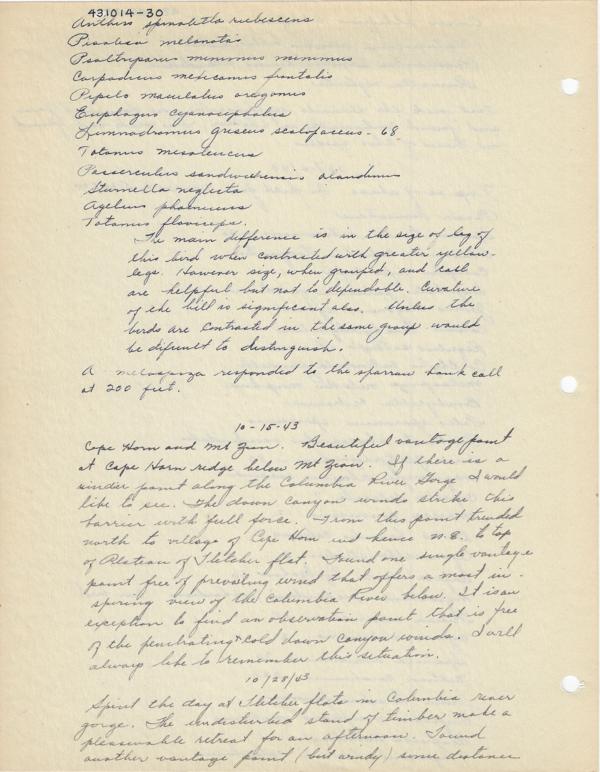 431014-30
Anthus spinoletta rubescens
Pisobia melanotos
Psaltriparus minimus minimus
Carpodicus mexicanus frontalis
Pipilo maculatus oregonus
Euphagus cyanocephalus
Limnodromus griseus scolopaceus - 68
Totanus melaleucus
Passerculus sandwichensis alaudinus
Sturnella neglecta
Agelius phoeniceus
Totanus flavipes.
The main difference is in the size of leg of
this bird when contrasted with greater yellow-
legs. However size, when grouped, and call
are helpful but not to dependable. Curvature
of the bill is significant also. Unless the
birds are contrasted in the same group would
be difficult to distinguish.
A melospiza responded to the sparrow hawk call
at 200 feet.
10-15-43
Cape Horn and Mt Zion. Beautiful vantage point
at Cape Horn ridge below Mt Zion. If there is a
windier point along the Columbia River Gorge I would
like to see. The down canyon winds strike this
barrier with full force. From this point trended
north to village of Cape Horn and hence N.E. to top
of Plateau of Fletcher flat. Found one single vantage
point free of prevailing wind that offers a most in-
spiring view of the Columbia River below. It is an
exception to find an observation point that is free
of the penetrating + cold down canyon winds. I will
always like to remember this situation.
10/28/43
Spent the day at Fletcher flats in Columbia river
gorge. The undisturbed stand of timber make a
pleasurable retreat for an afternoon. Found
another vantage point (but windy) some distance